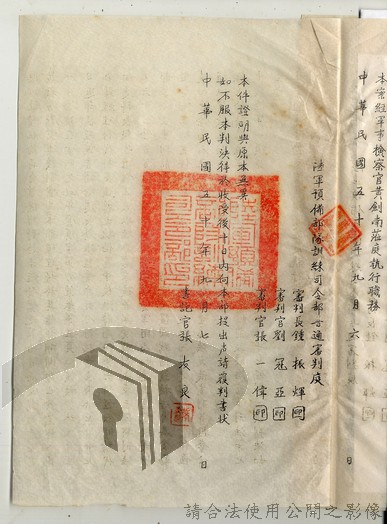 本案經軍事檢察官黃劍南蒞庭執行職務
中華民國五十年九月六日
陸軍預備部隊訓練司令部普通審判庭
審判長鍾振煇印
審判官劉冠亞印
審判官張一偉印
本件證明與原本無異
如不服本判決得於收受後十日內向本部提出聲請覆判書狀
中華民國五十年九月七日
書記官張友良
請合法使用公開之影像